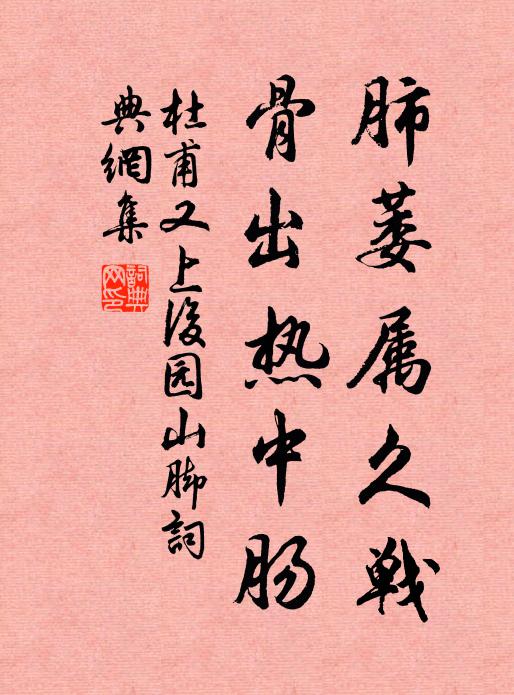 肺萎属久戦
骨出热中肠
杜甫又上後园山脚詞
典網集
詞典
网印